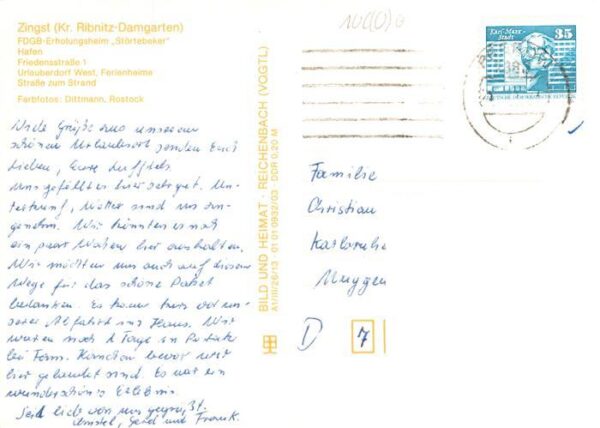 Zingst (Kr. Ribnitz-Damgarten)
FDGB-Erholungsheim „Störtebeker"
Hafen
Friedensstraße 1
Urlauberdorf West, Ferienheime
Straße zum Strand
Farbfotos: Dittmann, Rostock
Viele Grüße aus unserem
schönen Urlaubsort senden Euch
Lieben, Eure
Uns gefällt es hier sehr gut. Un-
terkunft, Wetter sind uns an-
genehm. Wir könnten es noch
ein paar Wochen hier aushalten.
Wir möchten uns auch auf diesem
Wege für das schöne Paket
bedanken. Es kam kurz vor un-
serer Abfahrt ins Haus. Wir
waren noch 2 Tage in
bei Fam. bevor wir
hier gelandet sind. Es war ein
wunderschönes Erlebnis.
Seid lieb von uns gegrüßt.
Gerd und Frank.
BILD UND HEIMAT · REICHENBACH (VOGTL)
A1/III/26/13 01 01 0932/03 DDR 0,20 M
Karl-Marx-
Stadt
35
DEUTSCHE DEMOKRATISCHE REPUBLIK
Familie
Christian
Karlsruhe
Muggen
D
7